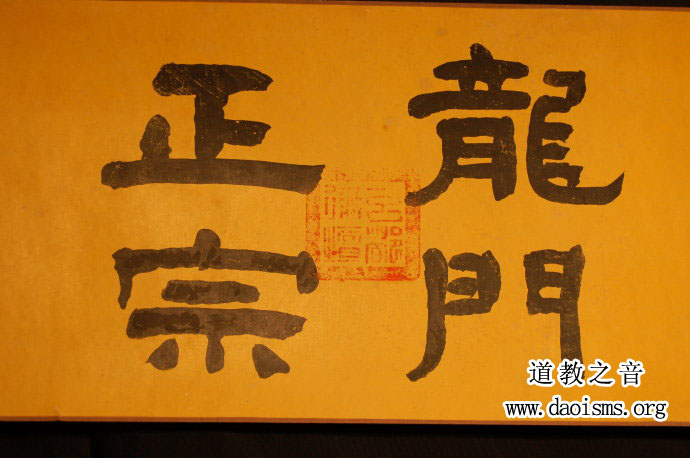 龍門
正宗
道教之音
www.daoisms.org